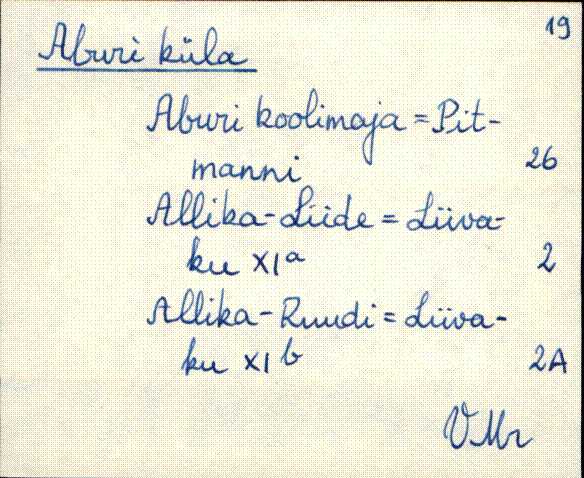 19
Aburi küla
Aburi koolimaja = Pit-
manni 26
Allika-Liide = Liiva-
ku XIa 2
Allika-Ruudi = Liiva-
ku XIb 2A
VMr